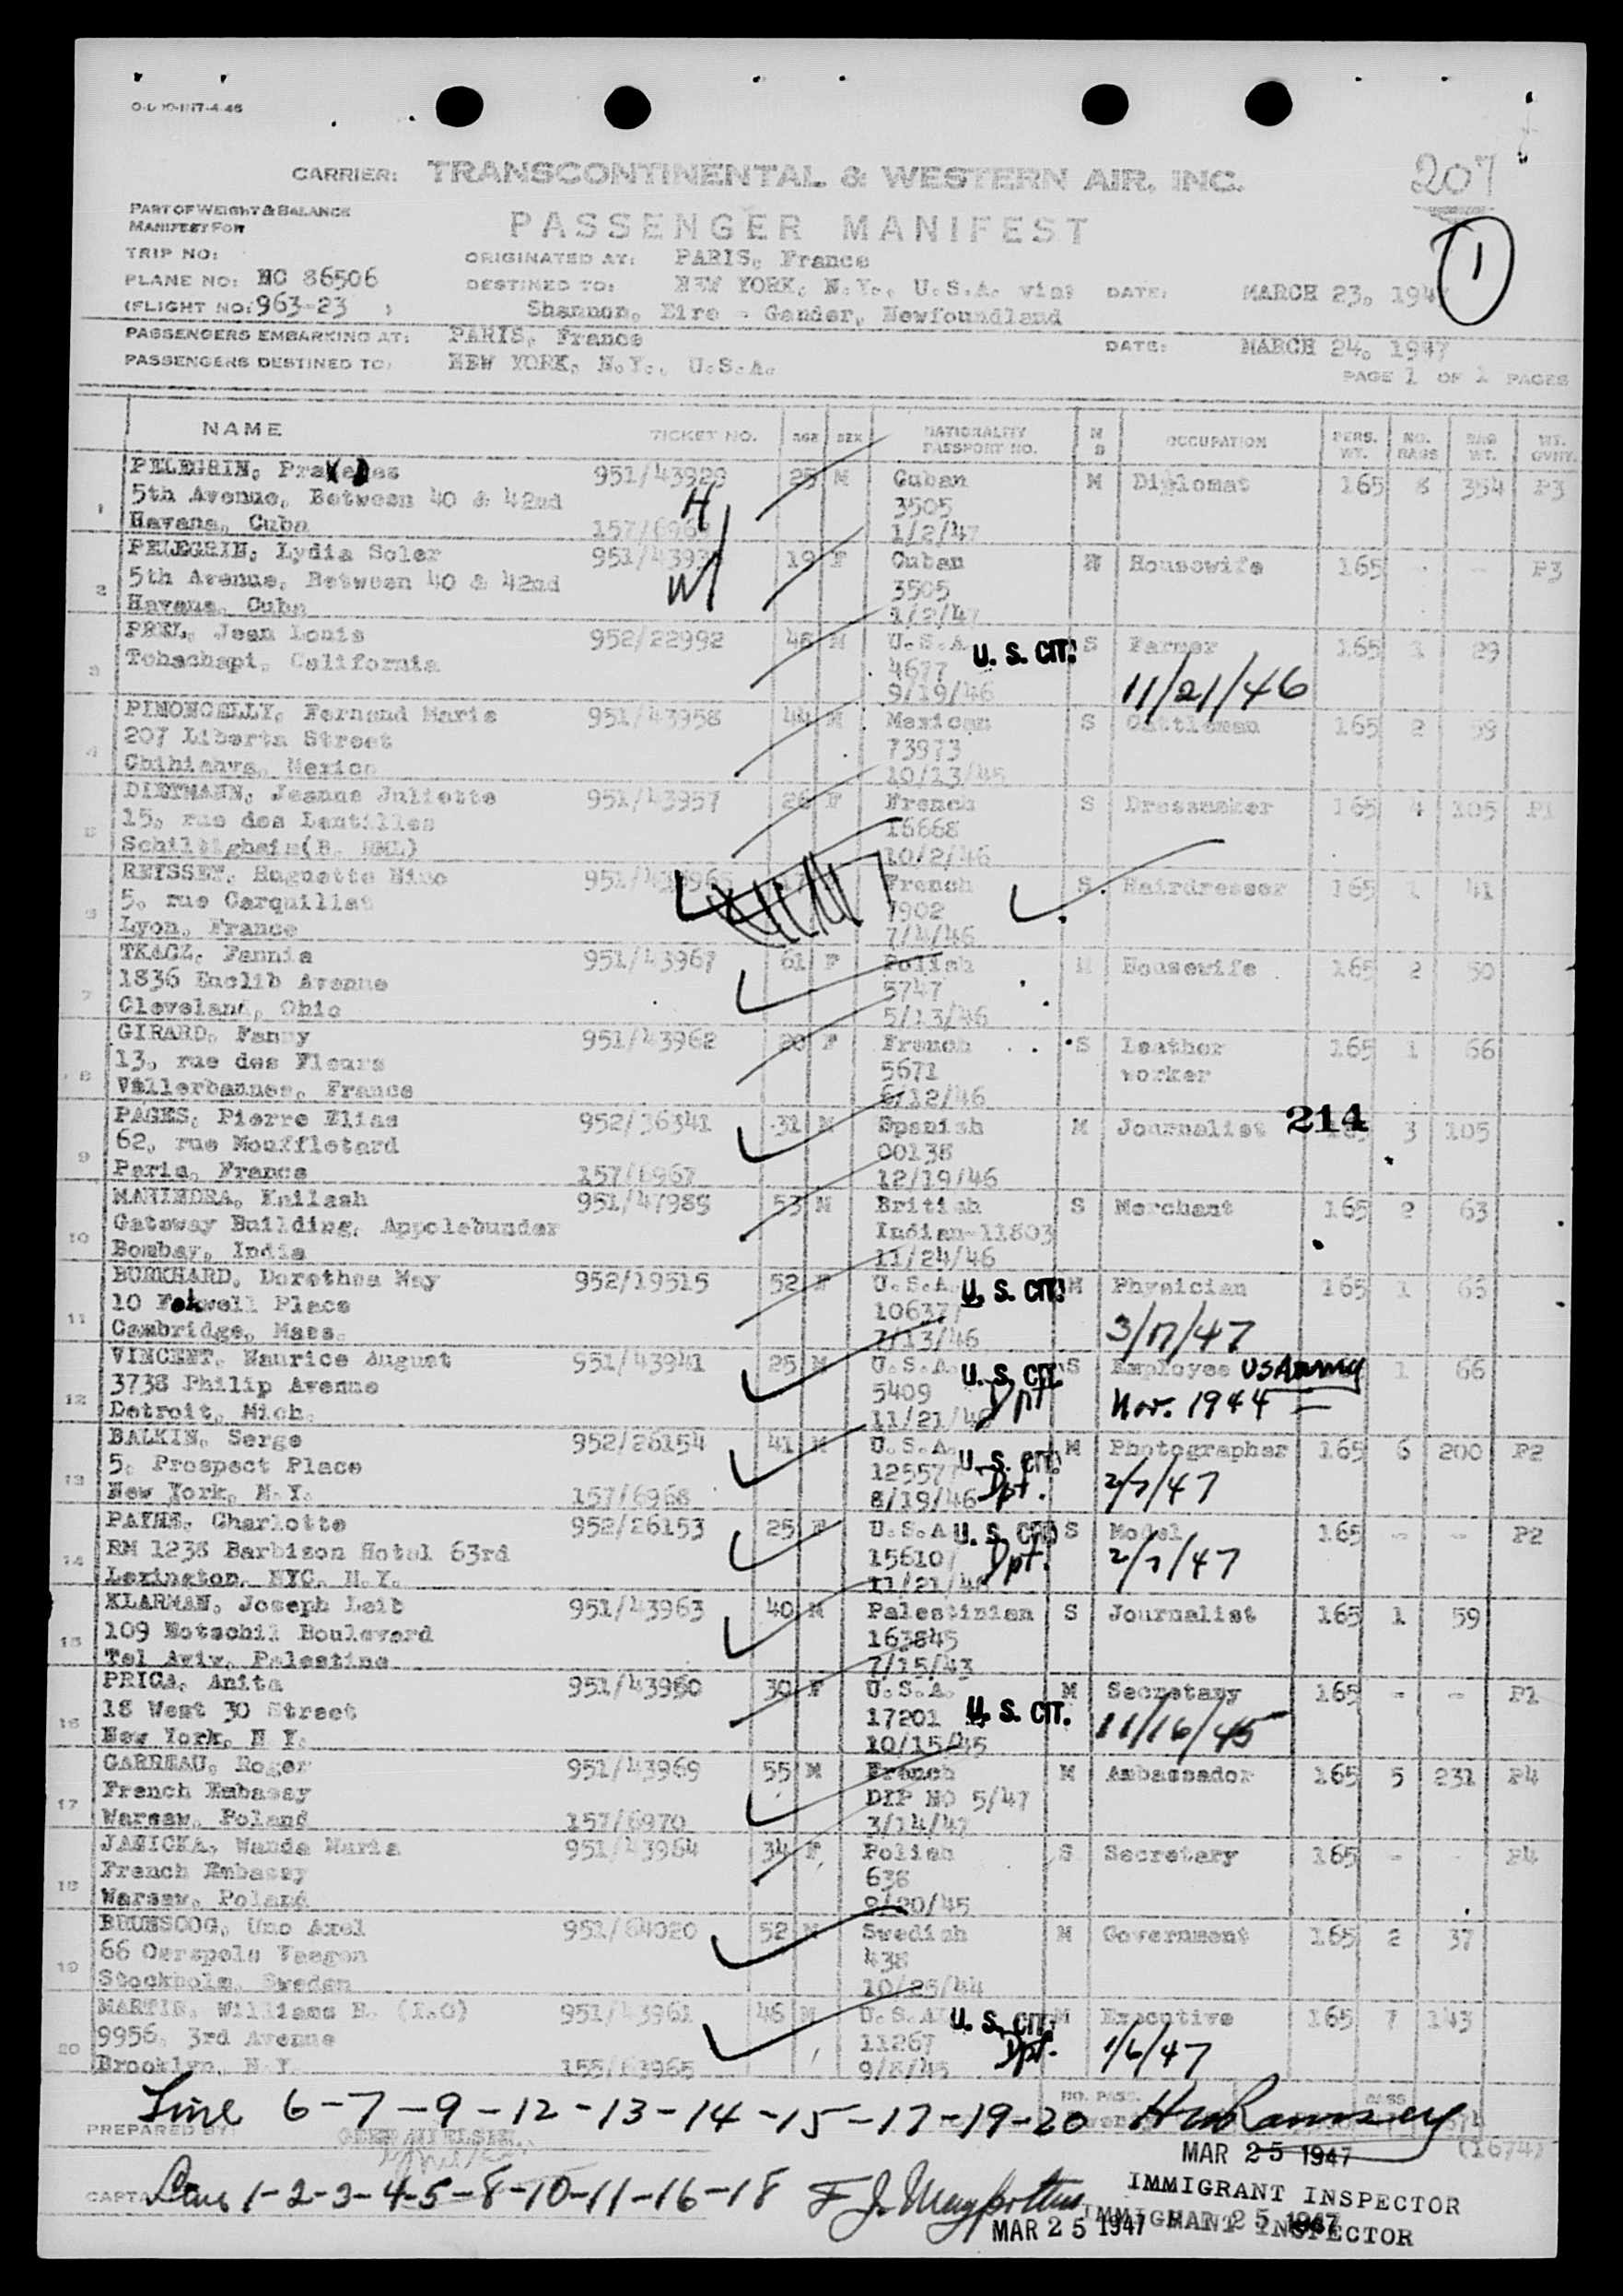 CARRIER: TRANSCONTINENTAL & WESTERN AIR, INC.
207
PART OF WEIGHT & BALANCE
MANIFEST FOR
PASSENGER MANIFEST
1
TRIP NO:
ORIGINATED AT: PARIS, France
PLANE NO: NC 86506
DESTINED TO: NEW YORK, N.Y., U.S.A. via: DATE: MARCH 23, 194
(FLIGHT NO: 963-23 )
Shannon, Eire - Gander, Newfoundland
PASSENGERS EMBARKING AT: PARIS, France DATE: MARCH 24, 1947
PASSENGERS DESTINED TO: NEW YORK, N.Y., U.S.A.
PAGE 1 OF 1 PAGES
NAME TICKET NO. AGE SEX NATIONALITY PASSPORT NO. M S OCCUPATION PERS. WT. NO. BAGS BAG WT. WT. GVNT.
1 PELEGRIN, 951/43929 25 M Cuban M Diplomat 165 8 354 P3
5th Avenue, Between 40 & 42nd H 3505
Havana, Cuba 1/2/47
2 PELEGRIN, Lydia Soler 19 F Cuban M Housewife 165 - - P3
5th Avenue, Between 40 & 42nd W 3505
Havana, Cuba 1/2/47
3 PREL, Jean Louis 952/22992 48 M U.S.A. U. S. CIT. S Farmer 165 1 29
Tehachapi, California 4677
9/19/46 11/21/46
4 PINONCELLY, Fernand Marie 951/43958 44 M Mexican S Cattleman 165 2 59
207 Liberta Street 73973
Chihiahva, Mexico 10/13/45
5 DIETMANN, Jeanne Juliette 951/43957 26 F French S Dressmaker 165 4 105 P1
15, rue des Lentilles 16668
10/2/46
6 REISSET, Huguette Nino French S Hairdresser 165 1 41
5, rue Carquillat 7902
Lyon, France 7/4/46
7 TKACZ, Fannia 951/43967 61 F Polish M Housewife 165 2 50
1836 Euclib Avenue 5747
Cleveland, Ohio 5/13/46
8 GIRARD, Fanny 951/43962 20 F French S Leather 165 1 66
13, rue des Fleurs 5671 worker
Villerbannes, France 6/12/46
9 PAGES, Pierre Elias 952/36341 31 M Spanish M Journalist 214 3 105
62, rue Mouffletard 00138
Paris, France 157/6967 12/19/46
10 MARINDRA, Kailash 951/47985 53 M British S Merchant 165 2 63
Gateway Building, Appolebunder Indian-11803
Bombay, India 11/24/46
11 BURKHARD, Dorothea May 952/19515 52 F U.S.A. U. S. CIT. M Physician 165 1 65
10 Place 10637
Cambridge, Mass. 7/13/46 3/17/47
12 VINCENT, Maurice August 951/43941 25 M U.S.A. U. S. CIT. S Employee US Army 1 66
3738 Philip Avenue 5409 Dpt
Detroit, Mich. 11/21/46 Nov. 1944
13 BALKIN, Serge 952/26154 41 M U.S.A. U. S. CIT. M Photographer 165 6 200 P2
5, Prospect Place 125577
New York, N.Y. 157/6968 8/19/46 Dpt. 2/7/47
14 PAYNE, Charlotte 952/26153 25 F U.S.A. U. S. CIT. S Model 165 - - P2
RM 1238 Barbison Hotel 63rd 15610 Dpt. 2/7/47
Lexington, NYC, N.Y. 11/21/46
15 KLARMAN, Joseph Leib 951/43963 40 M Palestinian S Journalist 165 1 59
109 Rotschil Boulevard 163845
Tel Aviv, Palestine 7/15/43
16 PRICA, Anita 951/43960 30 F U.S.A. M Secretary 165 - - P1
18 West 30 Street 17201 U. S. CIT. 11/16/45
New York, N.Y. 10/15/45
17 GARREAU, Roger 951/43969 55 M French M Ambassador 165 5 231 P4
French Embassy DIP NO 5/47
Warsaw, Poland 157/6970 3/14/47
18 JANICKA, Wanda Maria 951/43964 34 F Polish S Secretary 165 - - P4
French Embassy 638
Warsaw, Poland /20/45
19 BRUNSCOG, Uno Axel 951/64020 52 M Swedish M Government 165 2 37
66 438
Stockholm, Sweden 10/25/44
20 MARTIN, Williams E. 951/43961 46 M U.S.A. U. S. CIT. M Executive 165 7 143
9956, 3rd Avenue 11267 Dpt. 1/6/47
Brooklyn, N.Y. 9/8/45
NO. PASS.
Line 6-7-9-12-13-14-15-17-19-20
PREPARED BY:
MAR 25 1947
IMMIGRANT INSPECTOR
1-2-3-4-5-8-10-11-16-18
MAR 25 1947
IMMIGRANT INSPECTOR